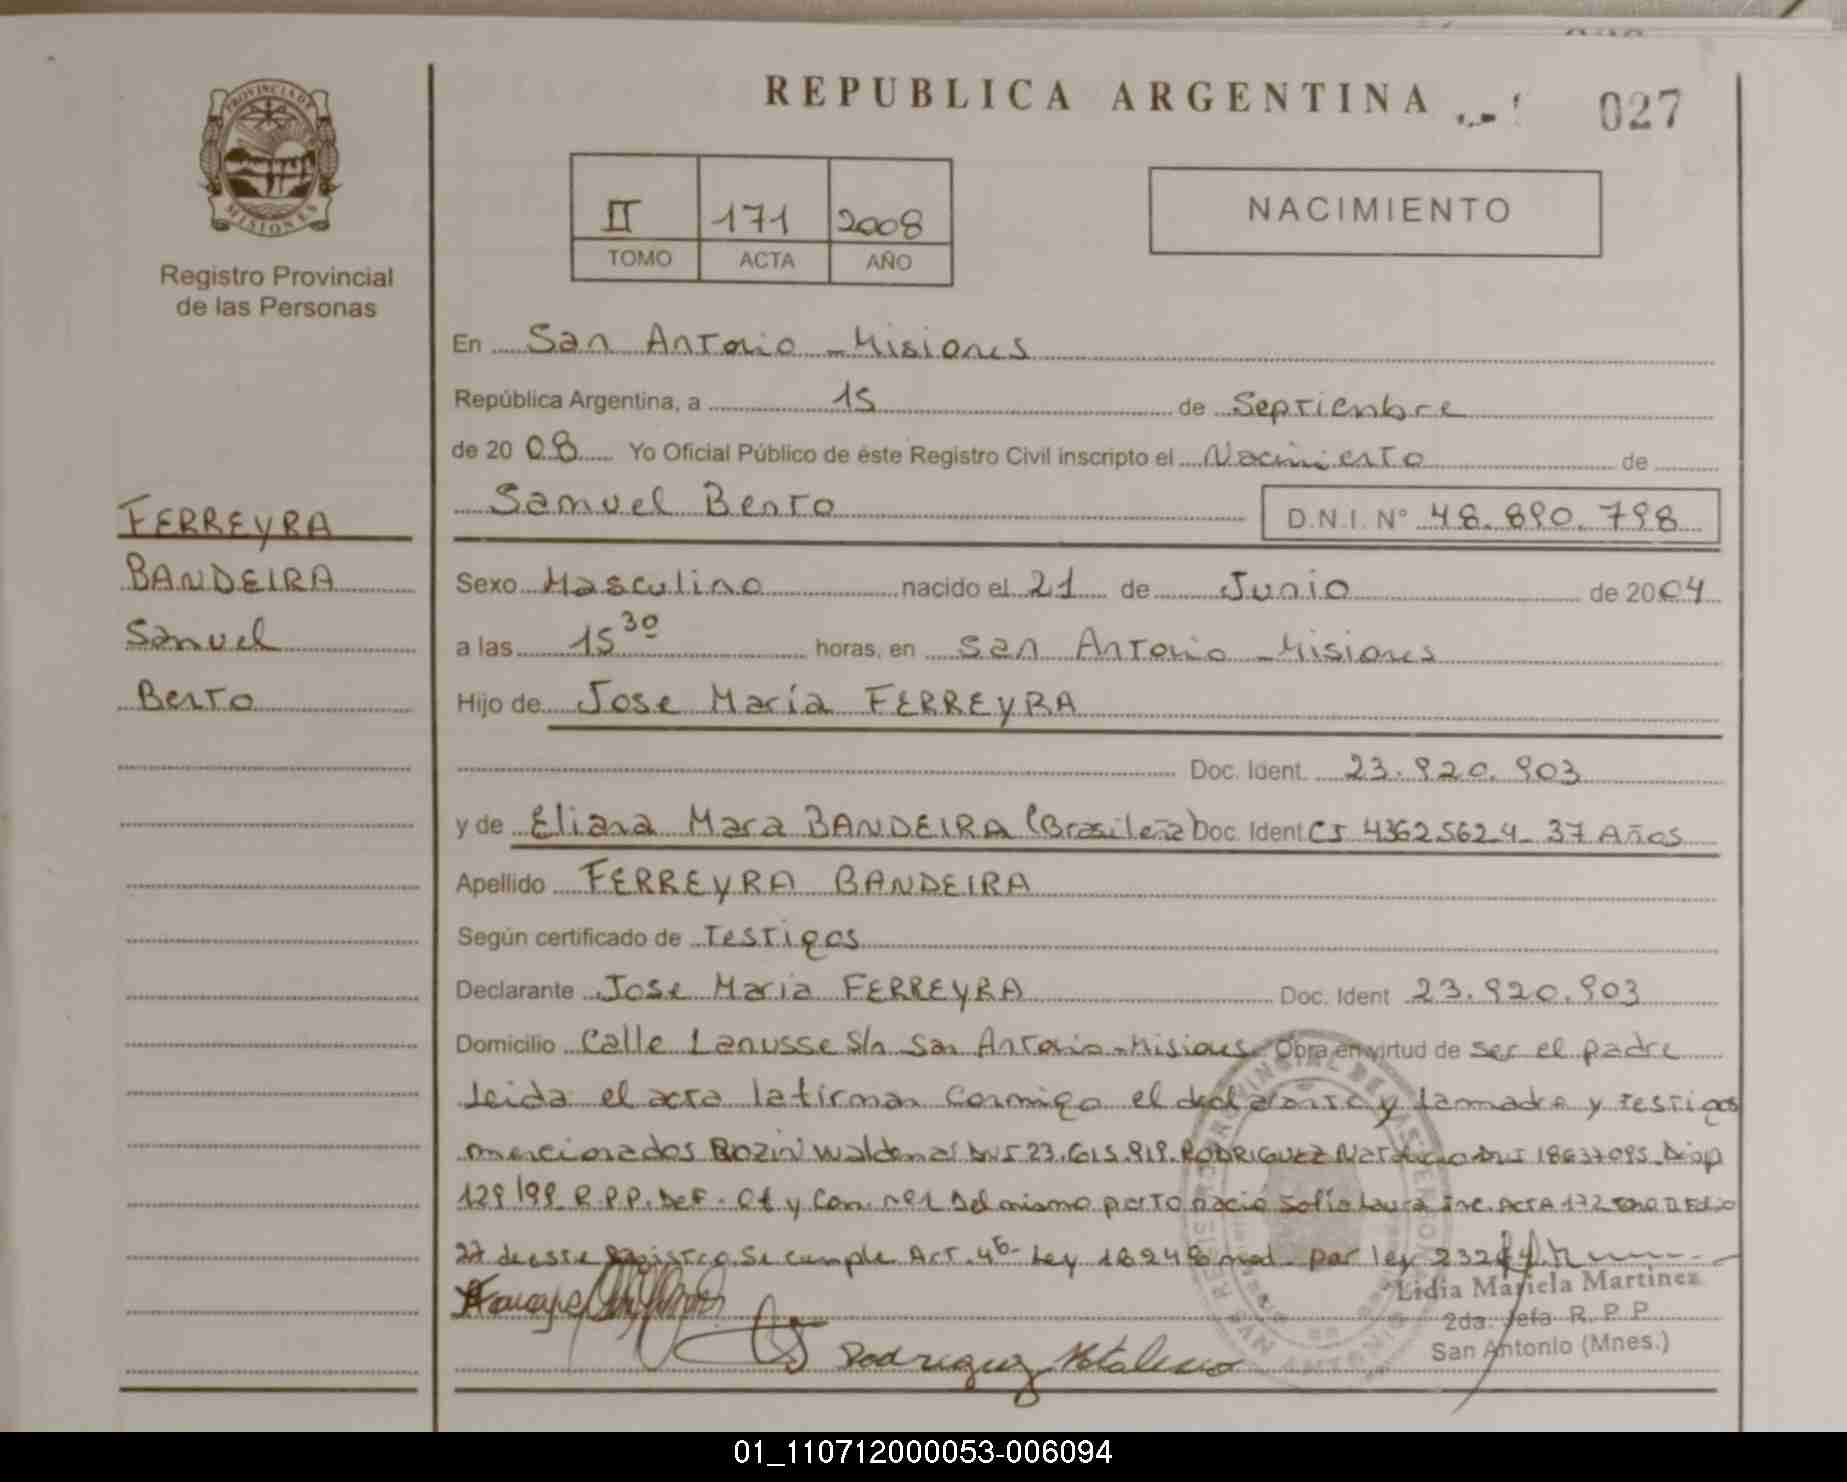 REPUBLICA ARGENTINA
027
PROVINCIA DE
MISIONES
Registro Provincial
de las Personas
II 171 2008
TOMO ACTA AÑO
NACIMIENTO
En San Antonio - Misiones
República Argentina, a 15 de Septiembre
de 2008 Yo Oficial Público de éste Registro Civil inscripto el Nacimiento de
Samuel Bento D.N.I. Nº 48.890.798
FERREYRA
BANDEIRA
Samuel
Bento
Sexo Masculino nacido el 21 de Junio de 2004
a las 15 30 horas, en San Antonio - Misiones
Hijo de Jose María FERREYRA
Doc. Ident. 23.920.903
y de Eliana Mara BANDEIRA (Brasileña) Doc. Ident CI 4362562-4- 37 Años
Apellido FERREYRA BANDEIRA
Según certificado de Testigos
Declarante Jose Maria FERREYRA Doc. Ident 23.920.903
Domicilio Calle Lanusse S/n San Antonio - Misiones Obra en virtud de ser el padre
Leida el acta la firman conmigo el declarante y la madre y testigos
mencionados BOZIN Waldemar DNI 23.615.919. RODRIGUEZ DNI 18637095. Disp
129/99 R.P.P. Del mismo parto nacio Sofía Laura ACTA 172
27 de este Registro. Se cumple Art. 4º Ley 18248 mod. por ley
Rodriguez
Lidia Mariela Martinez
2da. Jefa R. P. P
San Antonio (Mnes.)
01_110712000053-006094